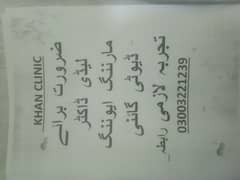 KHAN CLINIC
ضرورت برائے
لیڈی ڈاکٹر
مارننگ ایوننگ
ڈیوٹی گائنی
تجربہ لازمی رابطہ
03003221239